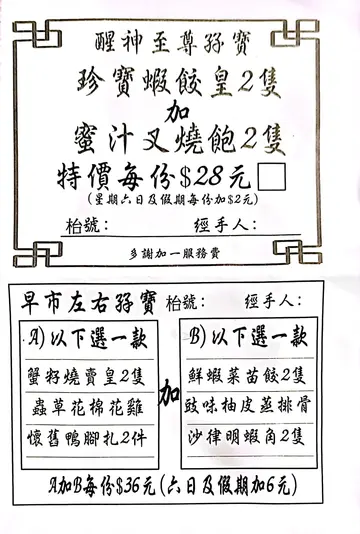 醒神至尊孖寶
珍寶蝦餃皇2隻
加
蜜汁叉燒飽2隻
特價每份$28元
(星期六日及假期每份加$2元)
枱號: 經手人:
多謝加一服務費
早市左右孖寶 枱號: 經手人:
A)以下選一款
蟹籽燒賣皇2隻
蟲草花棉花雞
懷舊鴨腳扎2件
加
B)以下選一款
鮮蝦菜苗餃2隻
豉味柚皮蒸排骨
沙律明蝦角2隻
A加B每份$36元(六日及假期加6元)